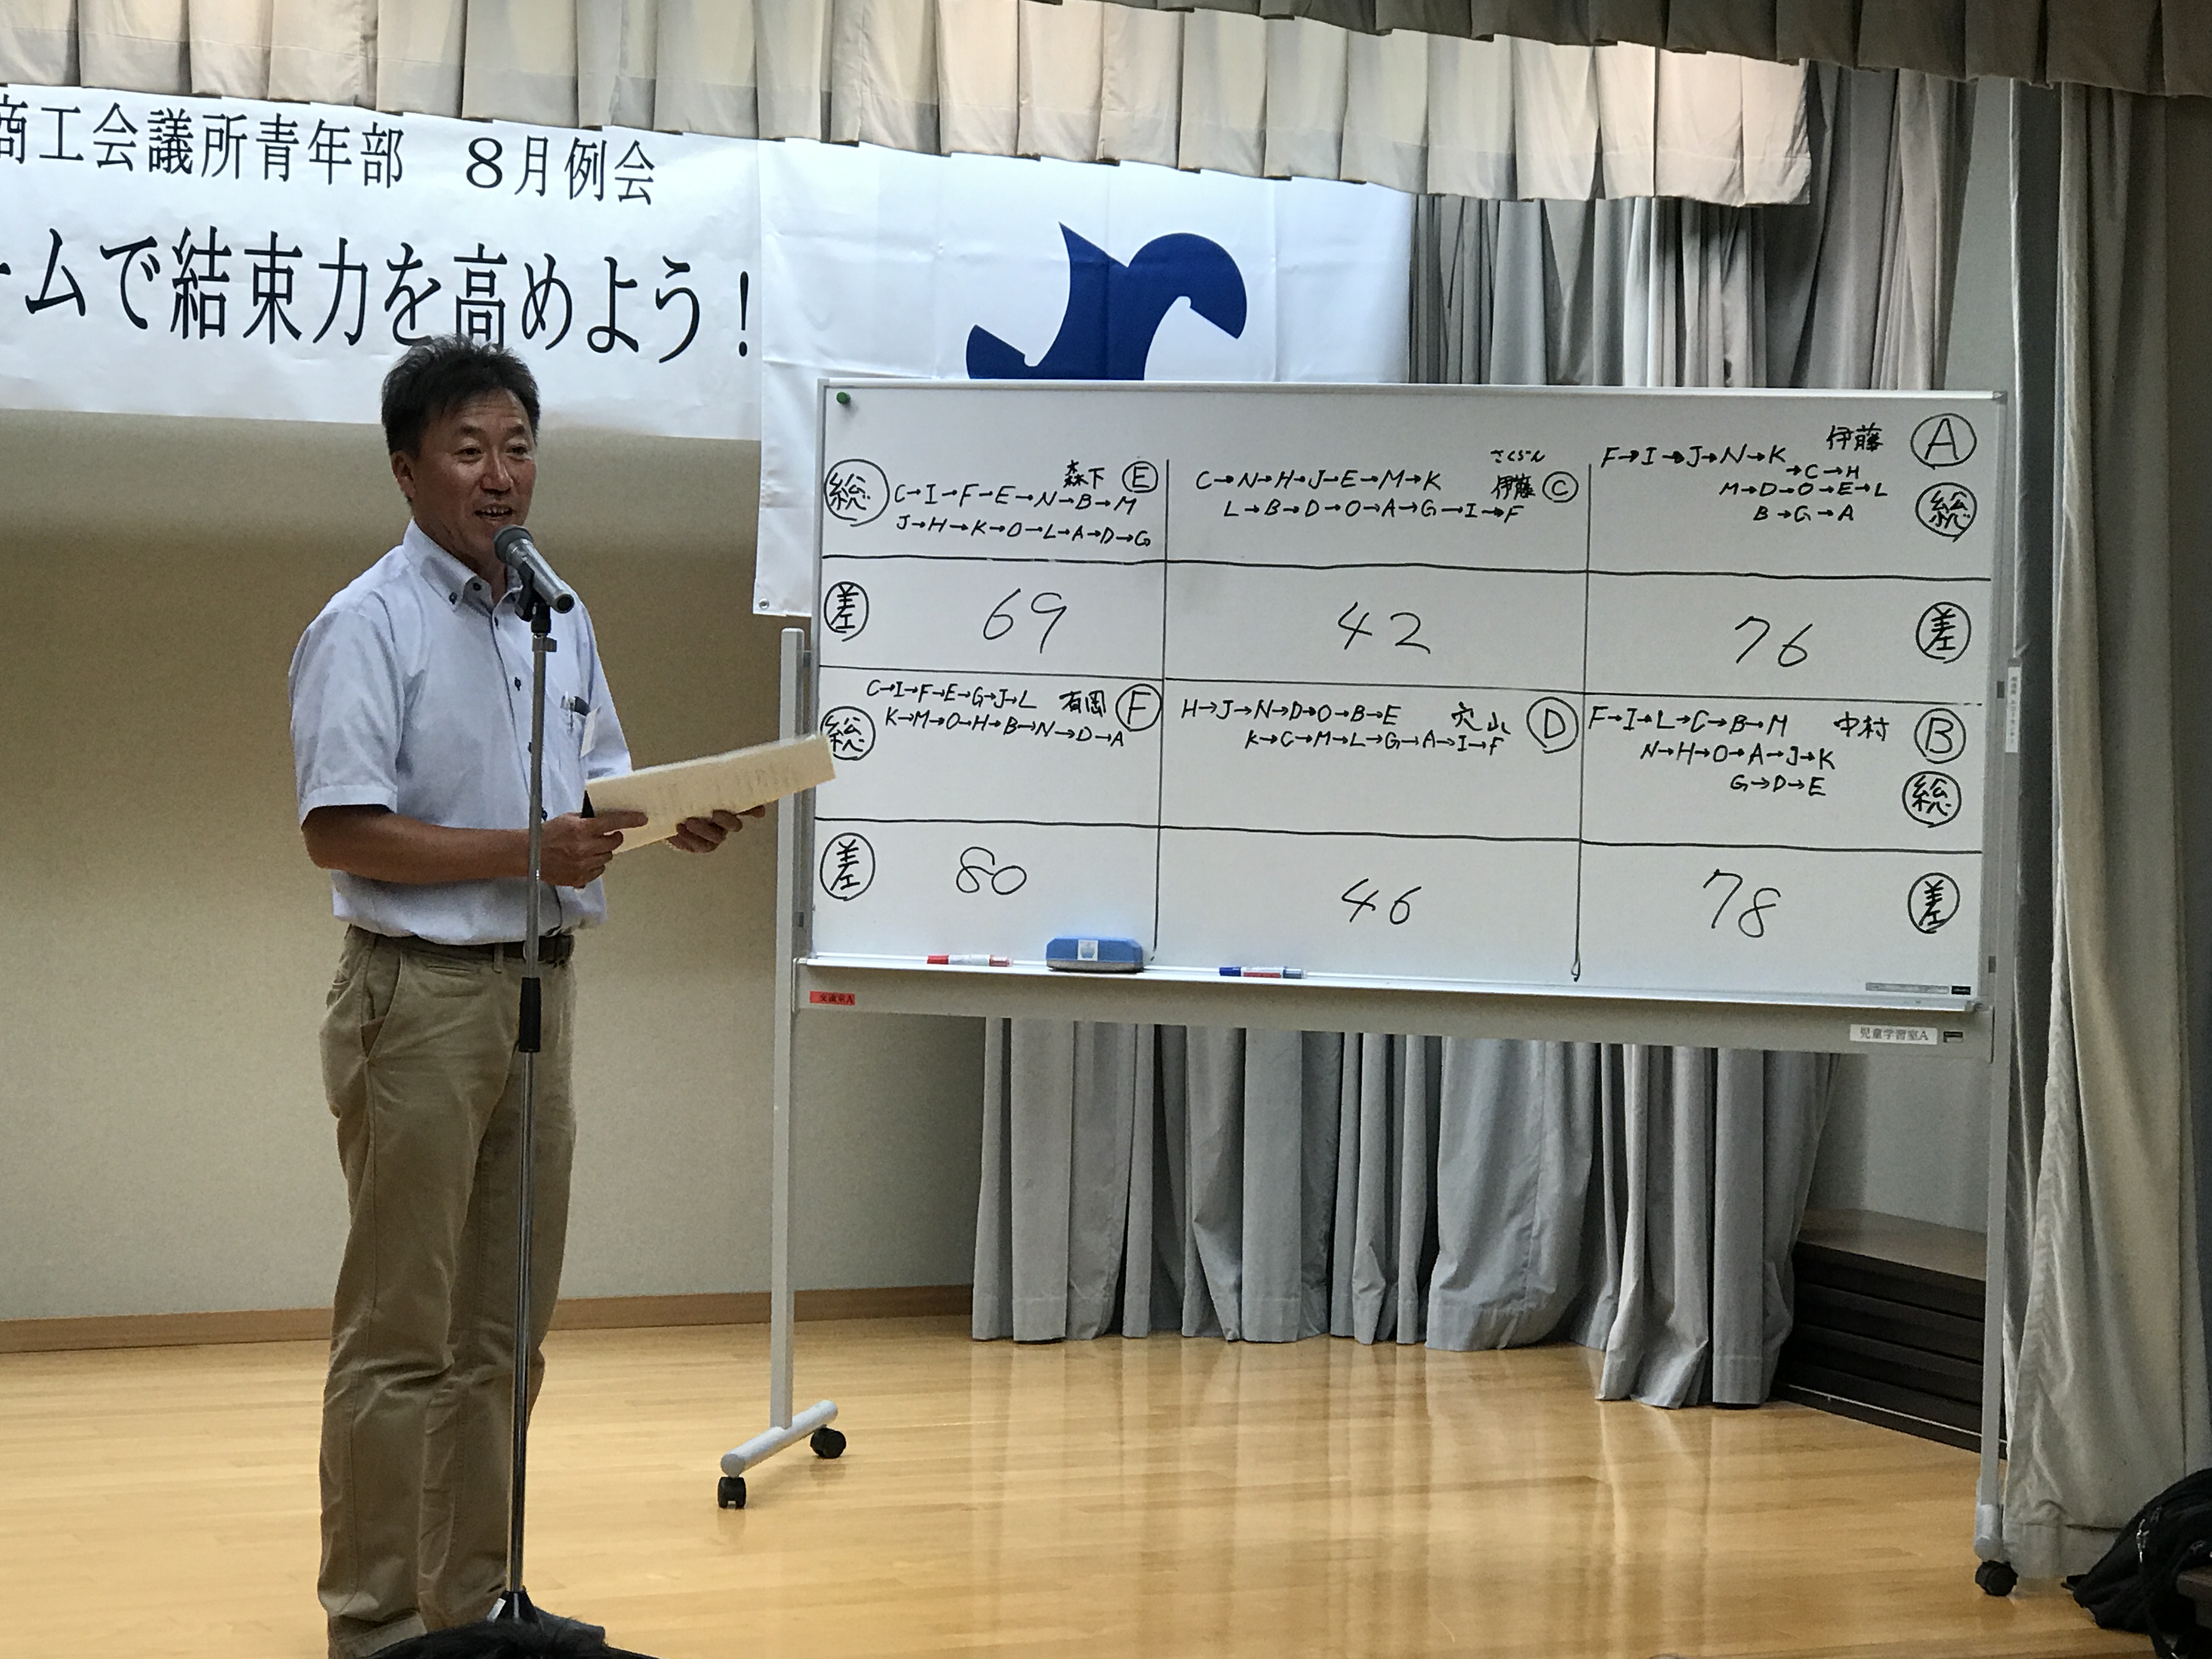 商工会議所青年部　８月例会
ームで結束力を高めよう！
総 森下 E
C→I→F→E→N→B→M
J→H→K→O→L→A→D→G
さくらん
伊藤 C
C→N→H→J→E→M→K
L→B→D→O→A→G→I→F
伊藤 A
総
F→I→J→N→K
→C→H
M→D→O→E→L
B→G→A
差 69
42
76 差
総 有岡 F
C→I→F→E→G→J→L
K→M→O→H→B→N→D→A
穴山 D
H→J→N→D→O→B→E
K→C→M→L→G→A→I→F
中村 B
総
F→I→L→C→B→M
N→H→O→A→J→K
G→D→E
差 80
46
78 差
交流室A
児童学習室A